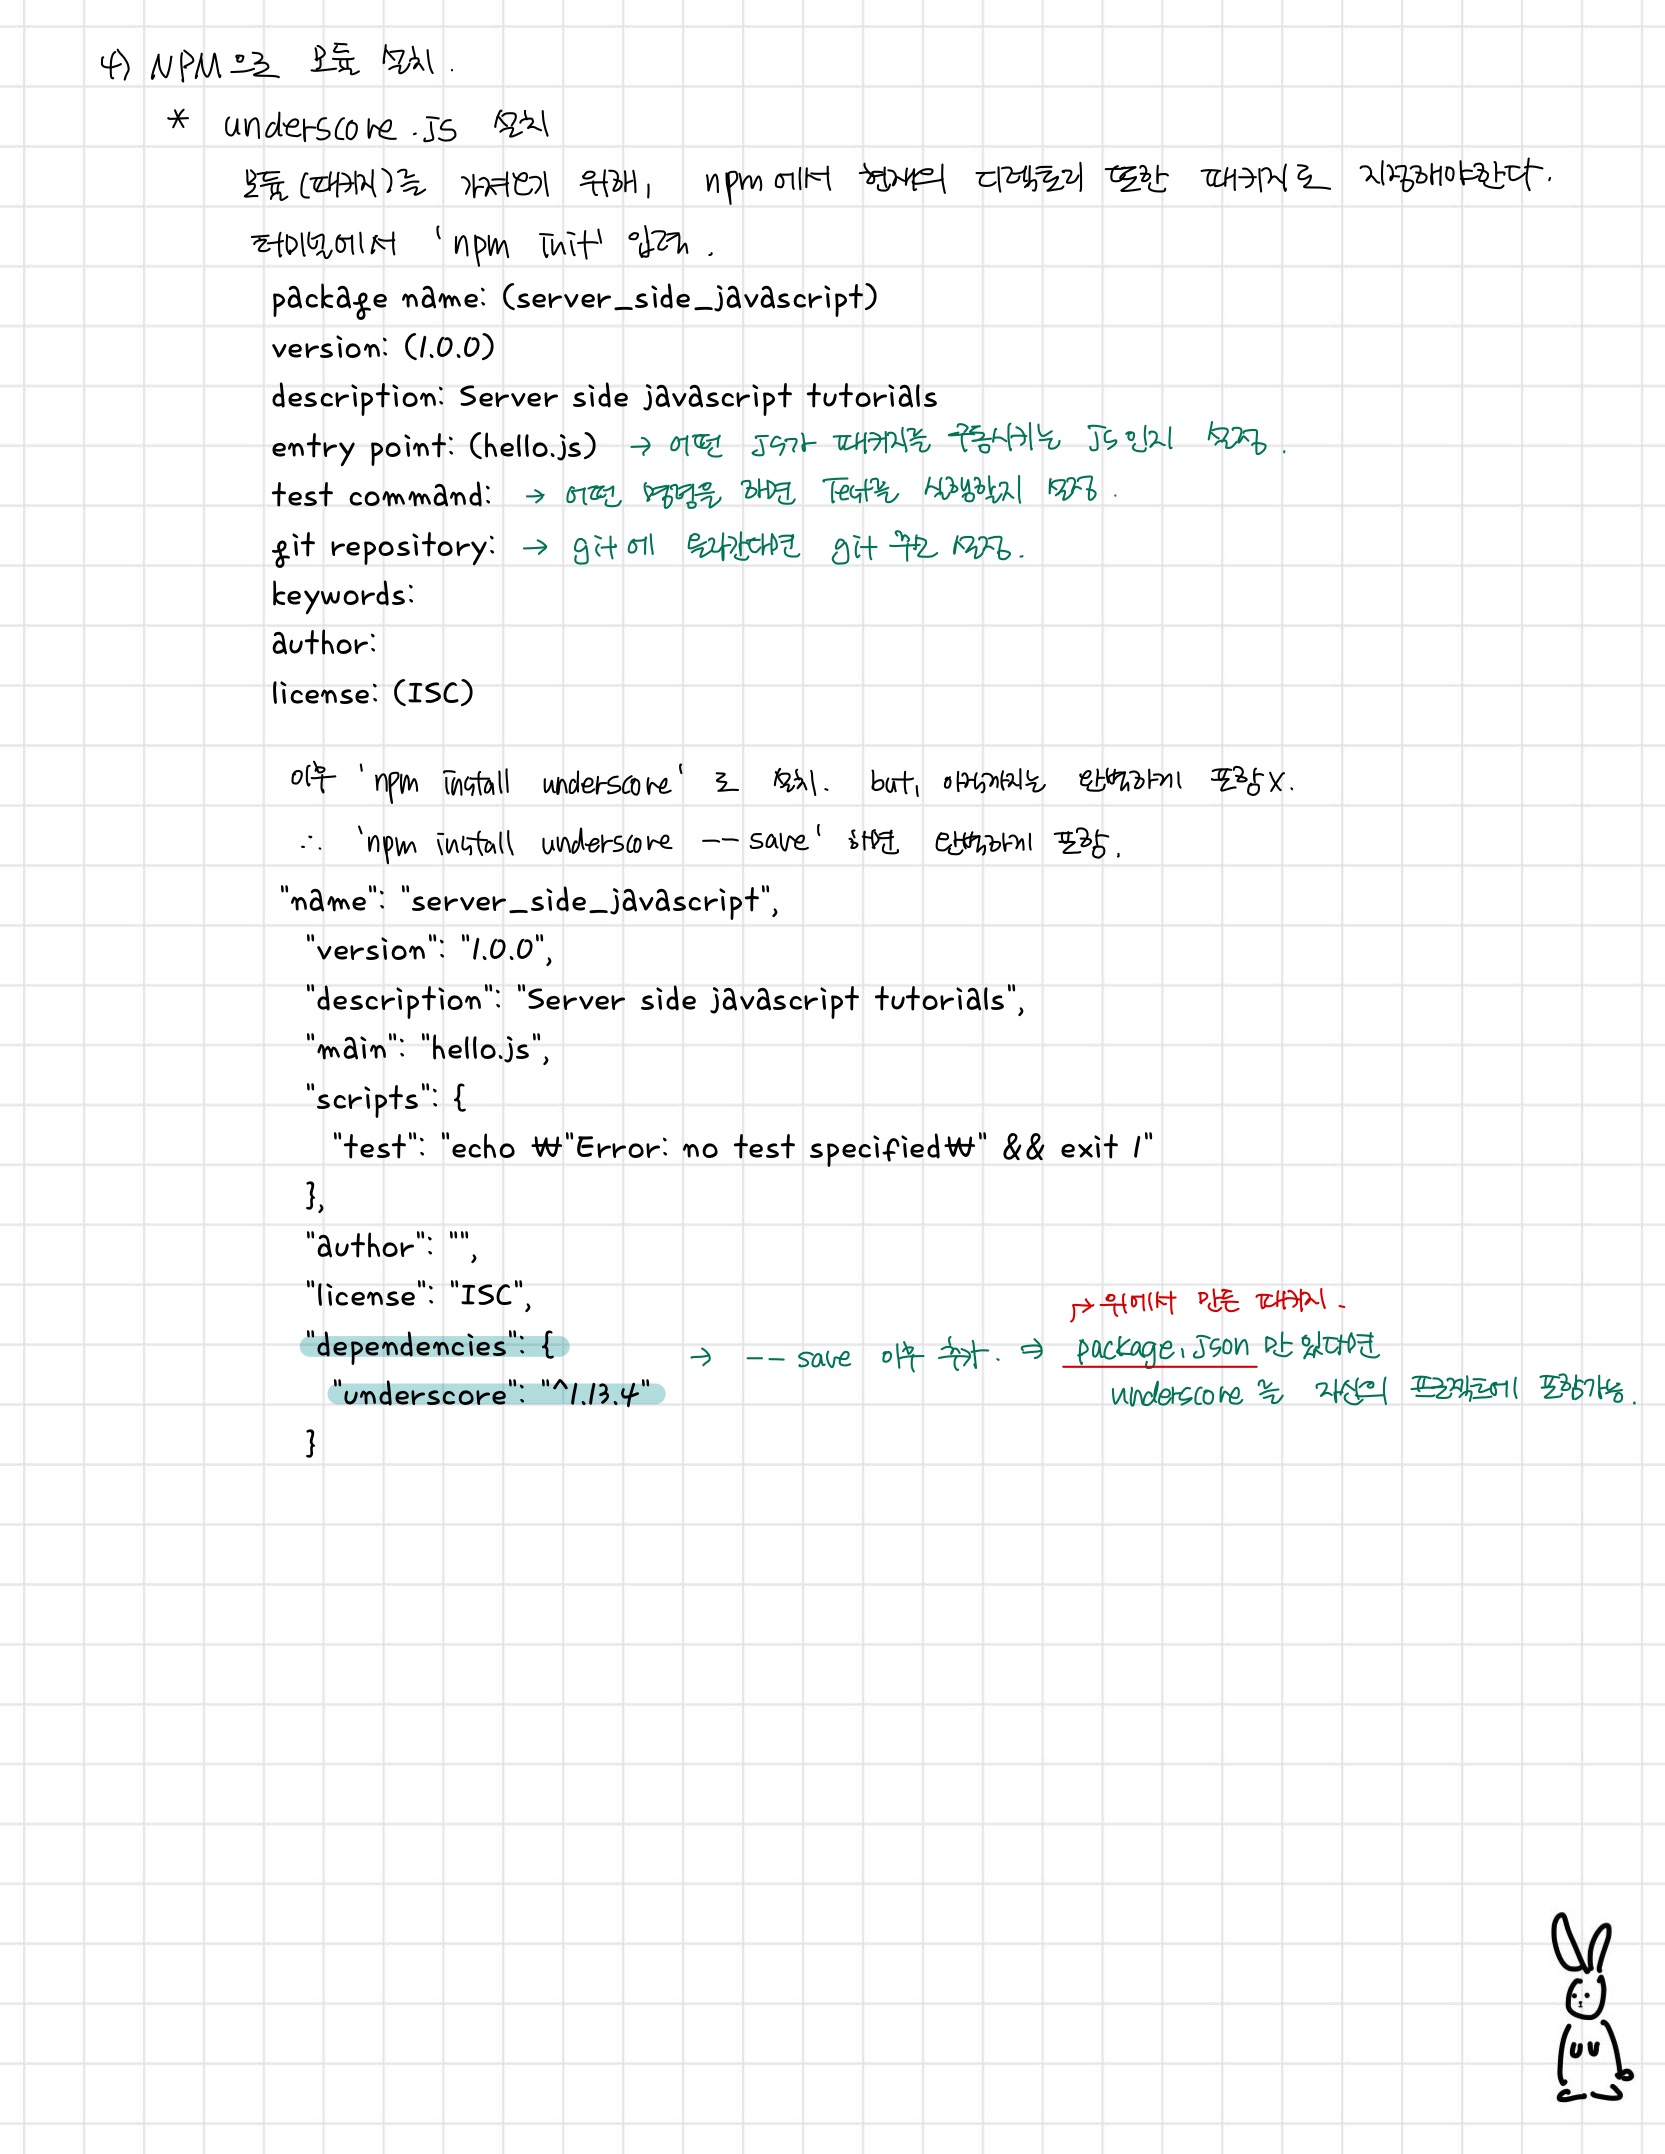 4) NPM으로 모듈 설치.
* underscore.js 설치
모듈(패키지)을 가져오기 위해, npm에서 현재의 디렉토리 또한 패키지로 지정해야한다.
터미널에서 'npm init' 입력.
package name: (server_side_javascript)
version: (1.0.0)
description: Server side javascript tutorials
entry point: (hello.js) → 어떤 JS가 패키지를 구동시키는 JS인지 설정.
test command: → 어떤 명령을 하면 Test를 실행할지 설정.
git repository: → git에 올라간다면 git 주소 설정.
keywords:
author:
license: (ISC)
이후 'npm install underscore' 로 설치. but, 아직까지는 완벽하게 포함X.
∴ 'npm install underscore --save' 하면 완벽하게 포함.
"name": "server_side_javascript",
"version": "1.0.0",
"description": "Server side javascript tutorials",
"main": "hello.js",
"scripts": {
"test": "echo ₩"Error: no test specified₩" && exit 1"
},
"author": "",
"license": "ISC",
↱ 위에서 만든 패키지.
"dependencies": { → --save 이후 추가. ⇒ package.json 만 있다면
"underscore": "^1.13.4" underscore를 자신의 프로젝트에 포함가능.
}